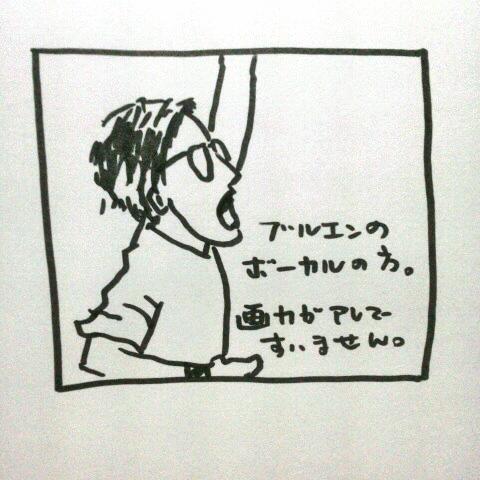 ブルエンの
ボーカルの方。
画力がアレで
すいません。